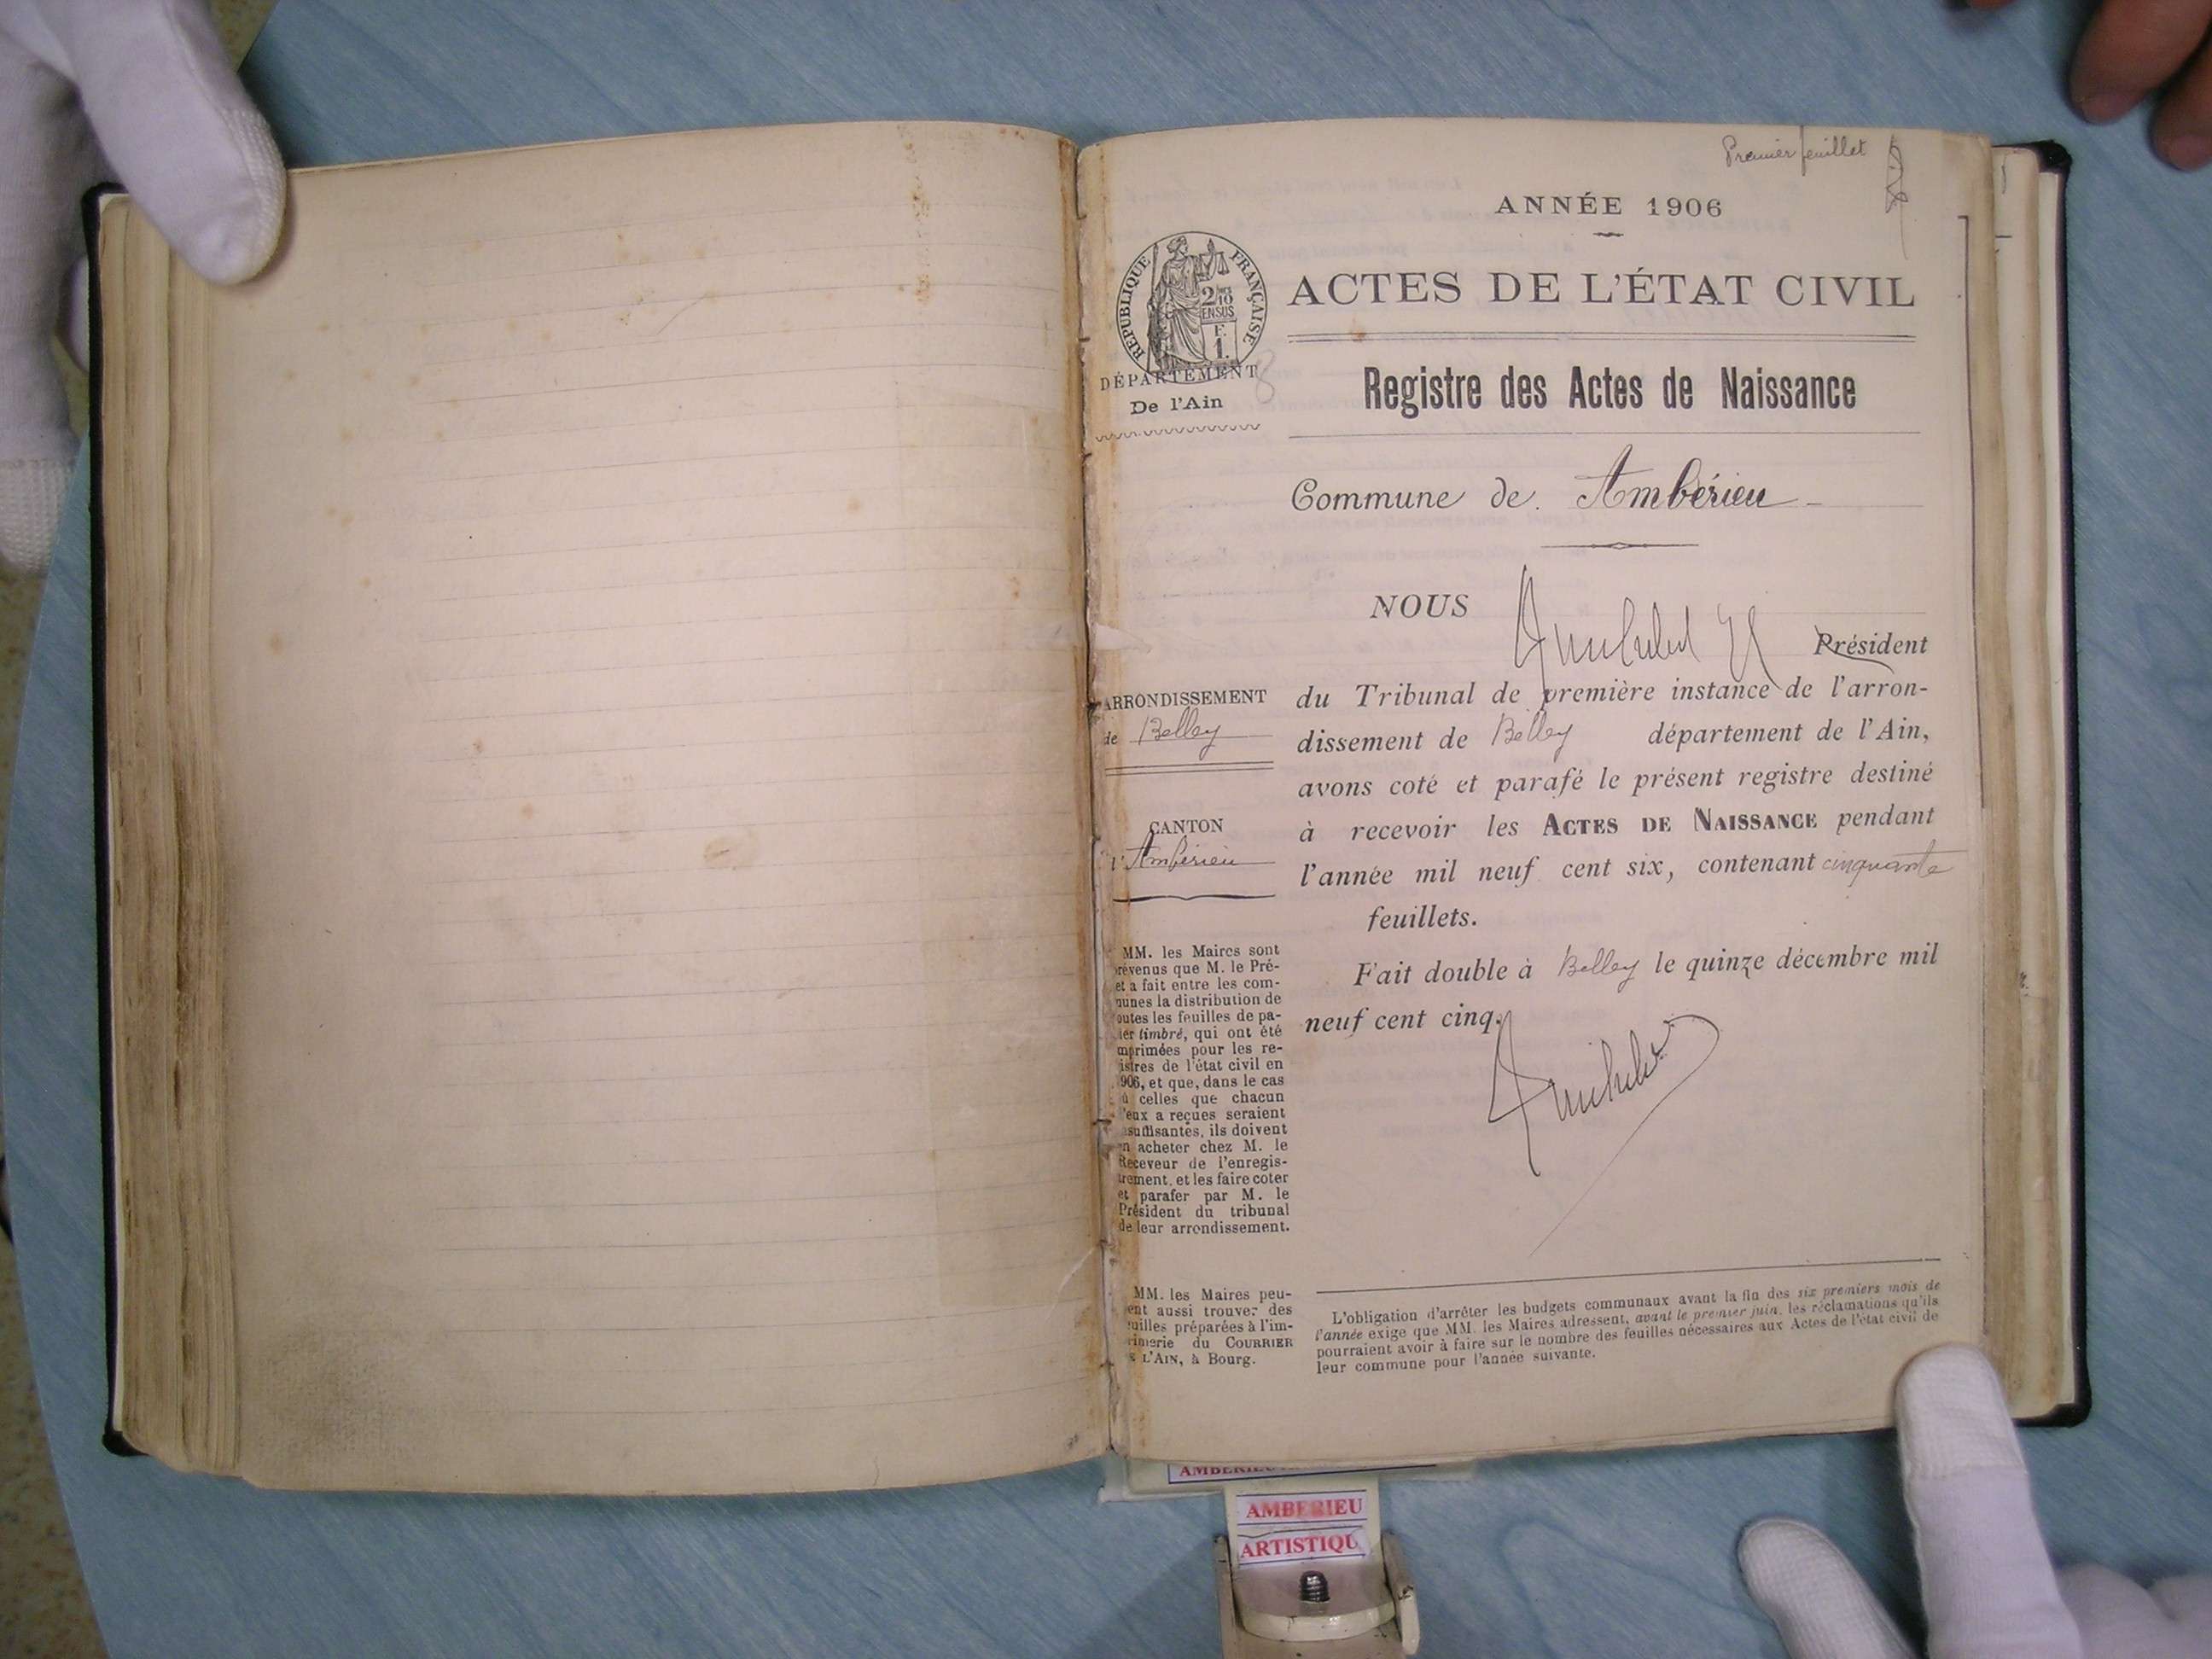 Premier feuillet
ANNÉE 1906
RÉPUBLIQUE FRANÇAISE
2/10
EN SUS
F.
1.
ACTES DE L'ÉTAT CIVIL
DÉPARTEMENT
De l'Ain
8
Registre des Actes de Naissance
Commune de Ambérieu
NOUS
Président
du Tribunal de première instance de l'arron-
dissement de Belley département de l'Ain,
avons coté et parafé le présent registre destiné
à recevoir les ACTES DE NAISSANCE pendant
l'année mil neuf cent six, contenant cinquante
feuillets.
Fait double à Belley le quinze décembre mil
neuf cent cinq.
ARRONDISSEMENT
de Belley
CANTON
Ambérieu
MM. les Maires sont
révenus que M. le Pré-
et a fait entre les com-
nunes la distribution de
outes les feuilles de pa-
ier timbré, qui ont été
mprimées pour les re-
istres de l'état civil en
906, et que, dans le cas
ù celles que chacun
'eux a reçues seraient
nsuffisantes, ils doivent
en acheter chez M. le
Receveur de l'enregis-
trement, et les faire coter
et parafer par M. le
Président du tribunal
de leur arrondissement.
MM. les Maires peu-
ent aussi trouver des
uilles préparées à l'im-
rimerie du COURRIER
L'AIN, à Bourg.
L'obligation d'arrêter les budgets communaux avant la fin des six premiers mois de
l'année exige que MM. les Maires adressent, avant le premier juin, les réclamations qu'ils
pourraient avoir à faire sur le nombre des feuilles nécessaires aux Actes de l'état civil de
leur commune pour l'année suivante.
AMBERIEU
ARTISTIQU